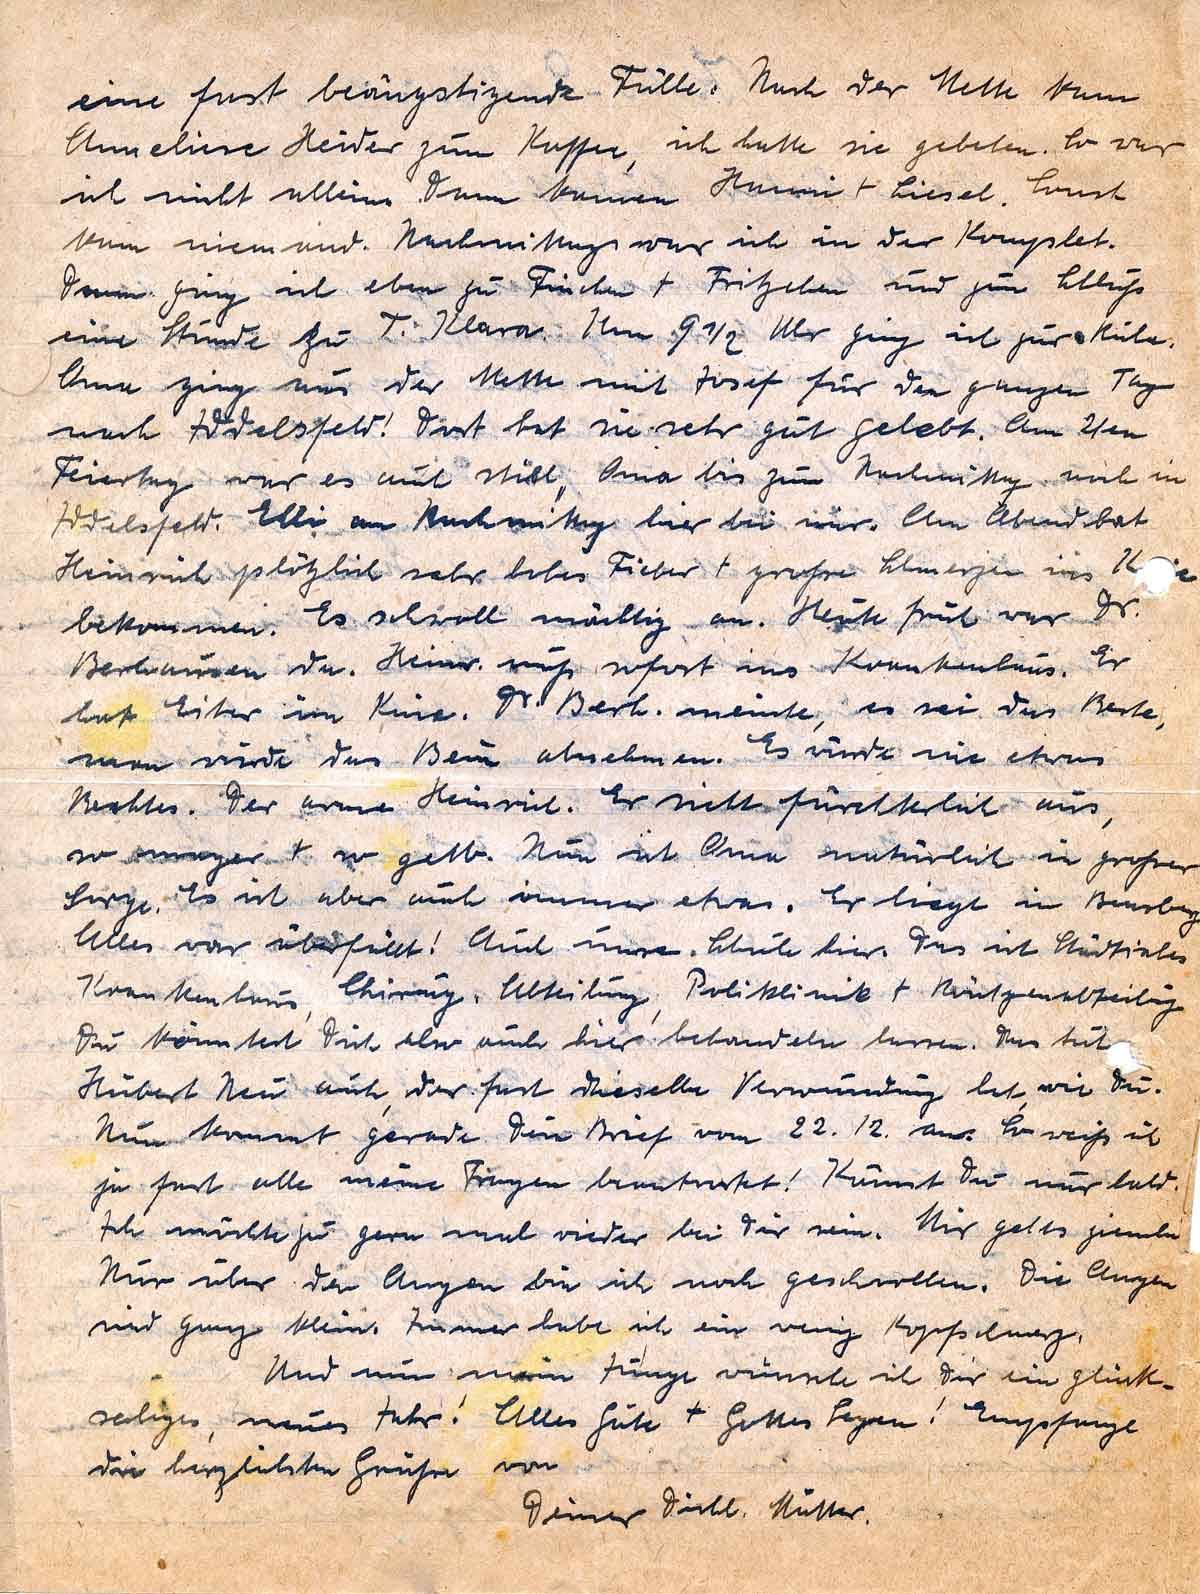 eine fast beängstigende Fülle. Nach der Mette kam
Anneliese Heider zum Kaffee, ich hatte sie gebeten. So war
ich nicht allein. Dann kamen Hanni + Liesel. Sonst
kam niemand. Nachmittags war ich in der Komplet.
Dann ging ich eben zu Finchen + Fritzchen und zum Schluß
eine Stunde zu T. Klara. Um 9 1/2 Uhr ging ich zur Ruhe.
Oma ging aus der Mette mit Josef für den ganzen Tag
nach Iddelsfeld! Dort hat sie sehr gut gelebt. Am 2ten
Feiertag war es auch still, Oma bis zum Nachmittag noch in
Iddelsfeld. Elli am Nachmittag hier bei mir. Am Abend hat
Heinrich plötzlich sehr hohes Fieber + große Schmerzen ins
bekommen. Es schwoll mächtig an. Heute früh war Dr.
Berhausen da. Heinr. muß sofort ins Krankenhaus. Er
hat Eiter im Knie. Dr. Berh. meinte, es sei das Beste,
man würde das Bein abnehmen. Es würde nie etwas
Rechtes. Der arme Heinrich. Er sieht fürchterlich aus,
so mager + so gelb. Nun ist Oma natürlich in großer
Sorge. Es ist aber auch immer etwas. Er liegt in Bensberg
Alles war überfüllt! Auch unsre Schule hier. Das ist Städtisches
Krankenhaus, Chirurg. Abteilung, Poliklinik + Röntgenabteilung
Du könntest Dich also auch hier behandeln lassen. Das tut
Hubert Neu auch, der fast dieselbe Verwundung hat, wie Du.
Nun kommt gerade Dein Brief vom 22. 12. an. So weiß ich
ja fast alle meine Fragen beantwortet! Kämst Du nur bald.
Ich möchte zu gern mal wieder bei Dir sein. Mir geht es
Nur über den Augen bin ich noch geschwollen. Die Augen
sind ganz klein. Immer habe ich ein wenig Kopfschmerz.
Und nun mein Junge wünsche ich Dir ein glück-
seliges, neues Jahr! Alles Gute + Gottes Segen! Empfange
die herzlichsten Grüße von
Deiner Dichl. Mutter.